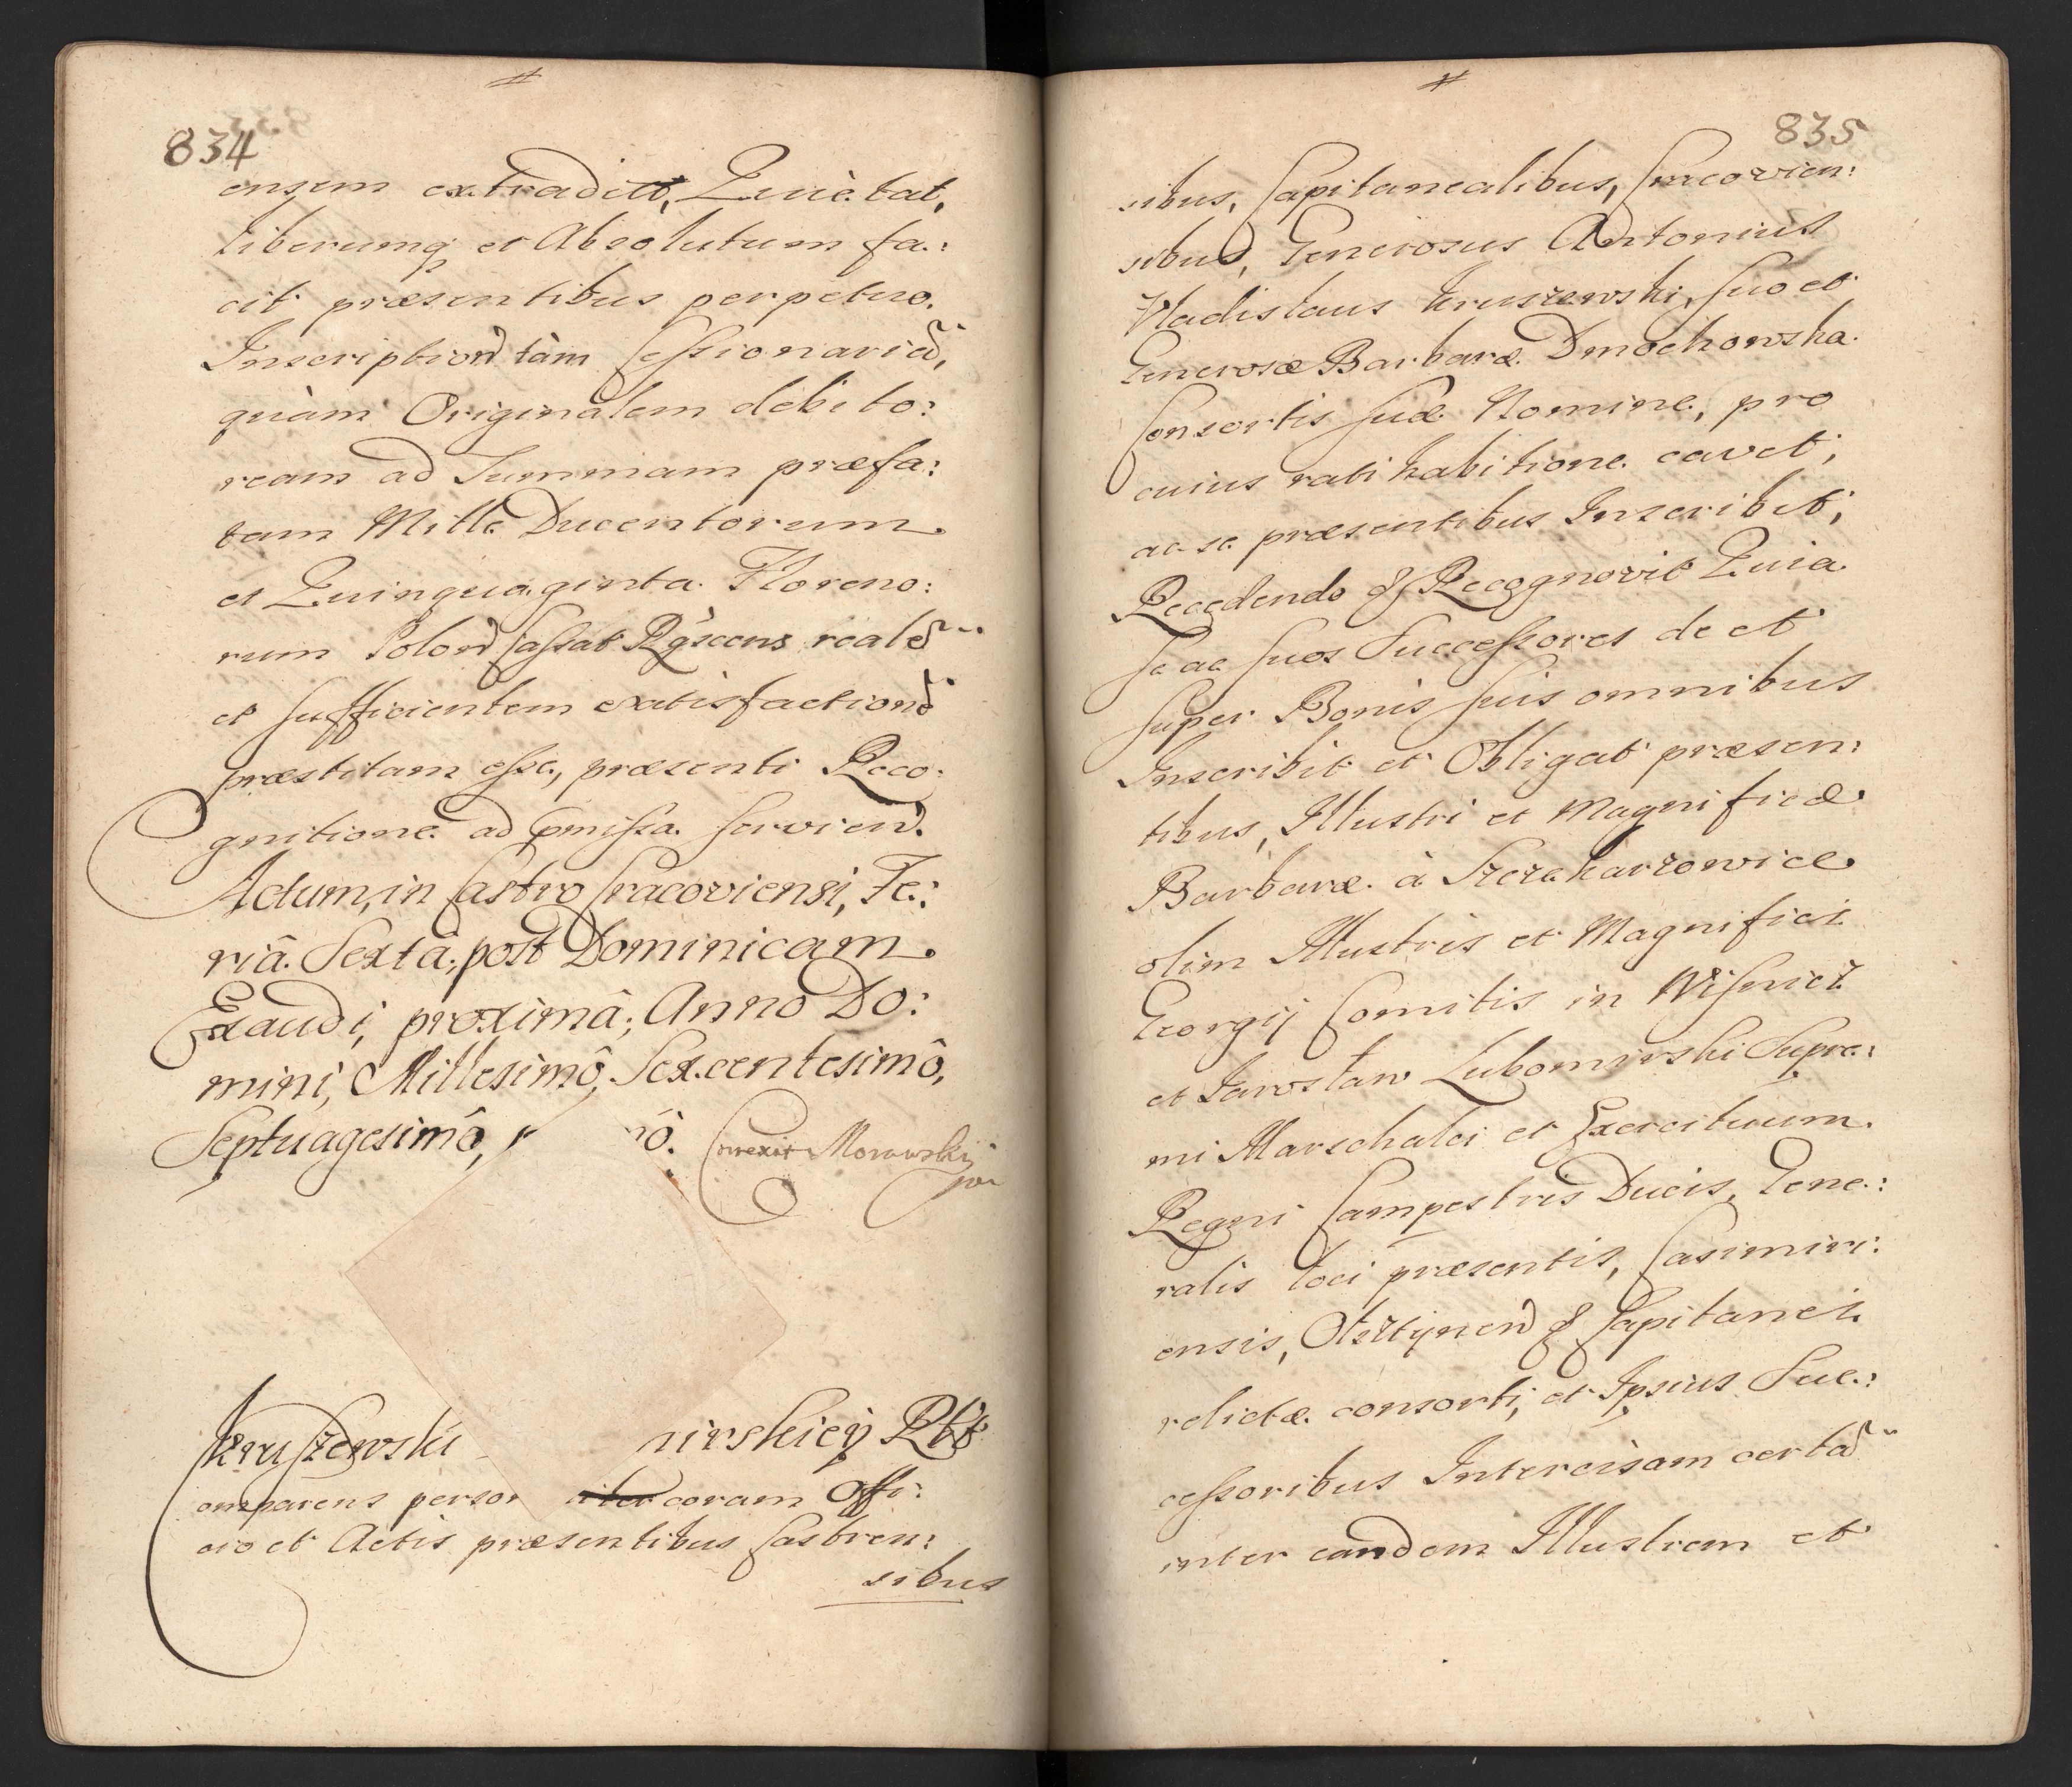 834
ensem extradit, Quietat,
liberumq et Absolutum fa:
cit præsentibus perpetuo.
Inscription tàm Cessionaria,
quàm Originalem debito:
ream ad Summam præfa:
tam Mille Ducentorum
et Quinquaginta Floreno:
rum Polon Cassat Rgscens reale
et sufficientem exatisfaction
præstitam esse, præsenti Reco:
gnitione ad præmissa servien.
Actum, in Castro Cracoviensi, Fe:
riâ Sextâ, post Dominicam
Exaudi, proximâ, Anno Do:
mini, Millesimô, Sexcentesimô,
Septuagesimô, mô. Correxit Morawski
Kruszewski mirskiey Rbt
omparens person coram Offi:
cio et Actis præsentibus Castren:
sibus
835
sibus, Capitanealibus, Cracovien:
sibus, Generosus Antonius
Vladislaus Kruszewski, suo et
Generosæ Barbaræ Dmochowska
Consortis suæ Nomine, pro
cuius ratihabitione cavet,
ac se præsentibus Inscribit,
Recedendo & Recognovit Quia
Se ac suos Successores de et
super Bonis suis omnibus
Inscribit et Obligat præsen:
tibus, Illustri et Magnificæ
Barbaræ à Szczekarzowice
olim Illustris et Magnifici
Georgij Comitis in Wisnicz
et Jarosław Lubomirski Supre:
mi Marschalci et Exercituum
Regni Campestris Ducis, Gene:
ralis loci præsentis, Casimiri:
ensis, Olsztynen & Capitanei
relictæ consorti, et Ipsius Suc:
cessoribus Intercisam certa
inter eandem Illustrem et